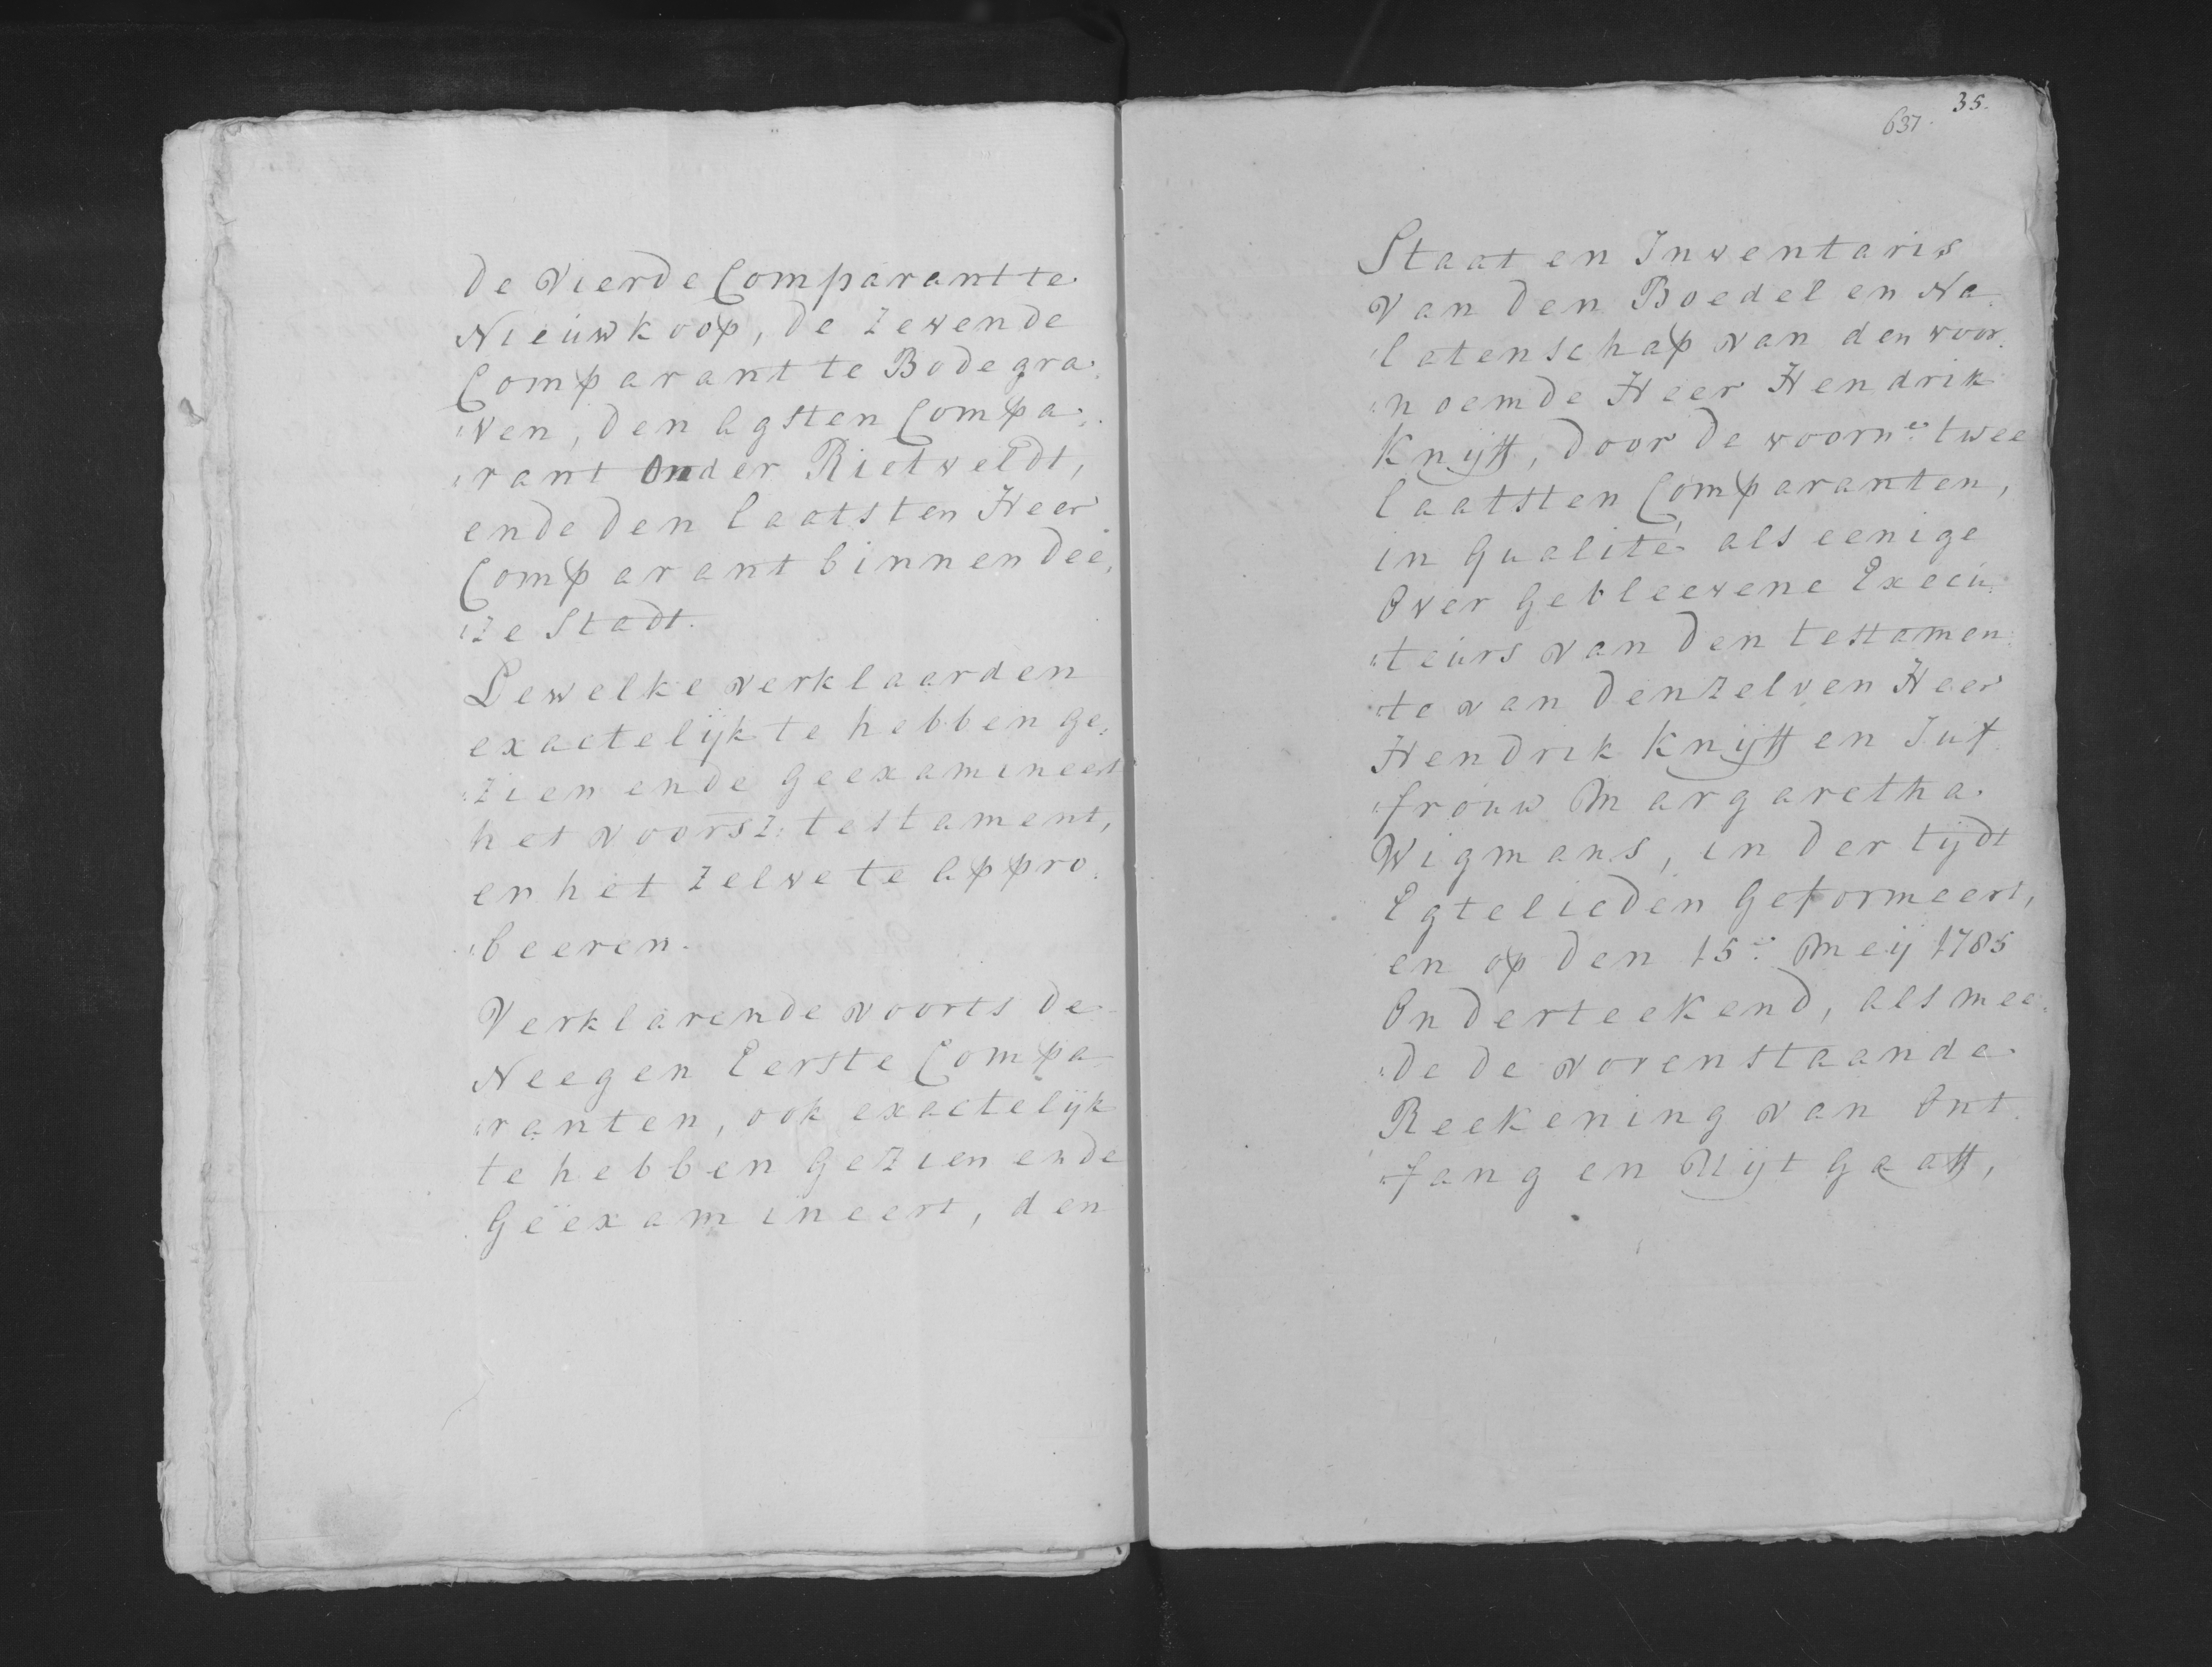 de Vierde Comparant te
Nieuwkoop, de Zevende
Comparant te Bodegra„
„ven, den Agsten Compa„
„rant onder Rietveldt,
ende den laatsten Heer
Comparant binnen dee„
„ze Stadt.
Dewelke verklaarden
exactelijk te hebben ge„
„zien ende geexamineert
het voorsz: testament,
en het zelve te Appro„
„beeren.
Verklarende voorts de
Neegen Eerste Compa„
„ranten, ook exactelijk
te hebben Gezien ende
Geëxamineert, den
637. 35.
Staat en Inventaris
van den Boedel en Na„
„latenschap van den voor„
„noemde Heer Hendrik
Knijff, door de voorn:e twee
laatsten Comparanten,
in Qualité als eenige
Over Gebleevene Execu„
„teurs van den testamen„
„te van denzelven Heer
Hendrik Knijff en Juf„
„frouw Margaretha
Wigmans, in der tijdt
Egtelieden Geformeert,
en op den 15:e Meij 1785
Onderteekend, als mee„
„de de vorenstaande
Reekening van Ont„
„fang en Uijtgaaff,